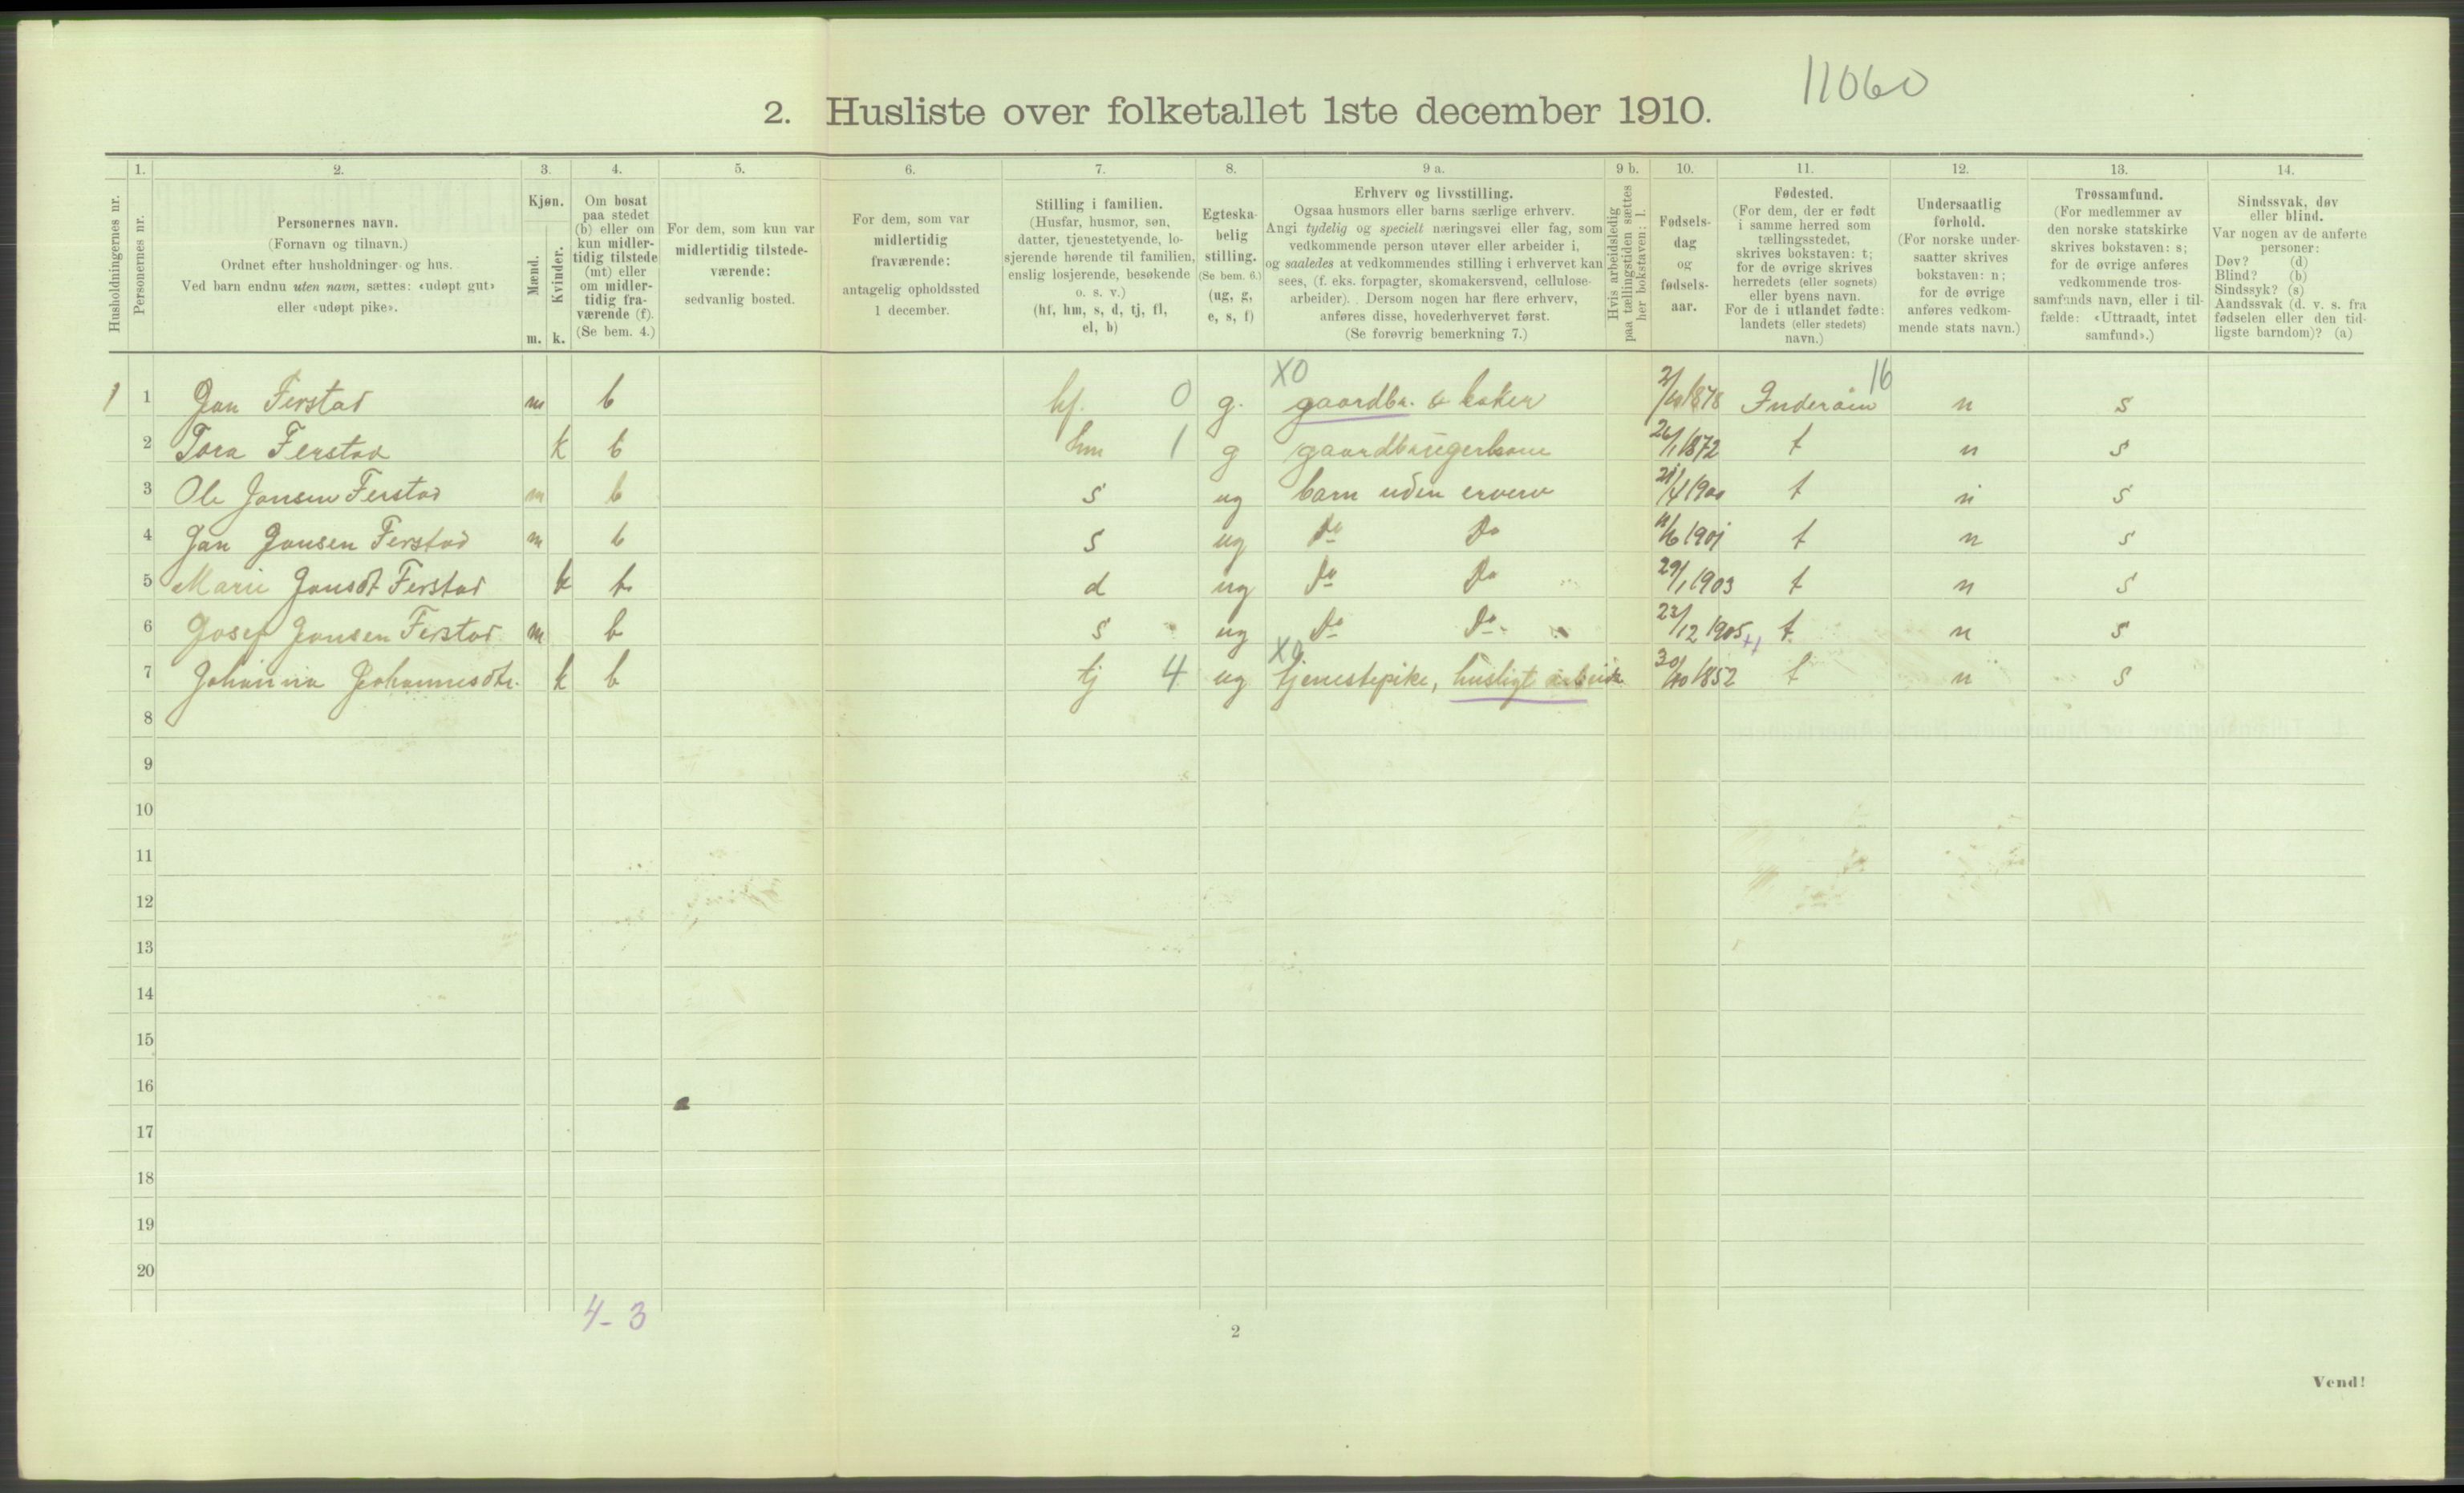 11060
2. Husliste over folketallet 1ste december 1910.
Husholdningernes nr.
1.
Personernes nr.
2.
Personernes navn.
(Fornavn og tilnavn.)
Ordnet efter husholdninger og hus.
Ved barn endnu uten navn, sættes: «udøpt gut»
eller «udøpt pike».
3.
Kjøn.
Mænd.
Kvinder.
m. k.
4.
Om bosat
paa stedet
(b) eller om
kun midler-
tidig tilstede
(mt) eller
om midler-
tidig fra-
værende (f).
(Se bem. 4.)
5.
For dem, som kun var
midlertidig tilstede-
værende:
sedvanlig bosted.
6.
For dem, som var
midlertidig
fraværende:
antagelig opholdssted
1 december.
7.
Stilling i familien.
(Husfar, husmor, søn,
datter, tjenestetyende, lo-
sjerende hørende til familien,
enslig losjerende, besøkende
o. s. v.)
(hf, hm, s, d, tj, fl,
el, b)
8.
Egteska-
belig
stilling.
(Se bem. 6.)
(ug, g,
e, s, f)
9 a.
Erhverv og livsstilling.
Ogsaa husmors eller barns særlige erhverv.
Angi tydelig og specielt næringsvei eller fag, som
vedkommende person utøver eller arbeider i,
og saaledes at vedkommendes stilling i erhvervet kan
sees, (f. eks. forpagter, skomakersvend, cellulose-
arbeider). Dersom nogen har flere erhverv,
anføres disse, hovederhvervet først.
(Se forøvrig bemerkning 7.)
9 b.
Hvis arbeidsledig
paa tællingstiden sættes
her bokstaven: l.
10.
Fødsels-
dag
og
fødsels-
aar.
11.
Fødested.
(For dem, der er født
i samme herred som
tællingsstedet,
skrives bokstaven: t;
for de øvrige skrives
herredets (eller sognets)
eller byens navn.
For de i utlandet fødte:
landets (eller stedets)
navn.)
12.
Undersaatlig
forhold.
(For norske under-
saatter skrives
bokstaven: n;
for de øvrige
anføres vedkom-
mende stats navn.)
13.
Trossamfund.
(For medlemmer av
den norske statskirke
skrives bokstaven: s;
for de øvrige anføres
vedkommende tros-
samfunds navn, eller i til-
fælde: «Uttraadt, intet
samfund».)
14.
Sindssvak, døv
eller blind.
Var nogen av de anførte
personer:
Døv? (d)
Blind? (b)
Sindssyk? (s)
Aandssvak (d. v. s. fra
fødselen eller den tid-
ligste barndom)? (a)
X0 16
1 1 Jan Ferstad m b hf. 0 g. gaardbr. & baker 1878 Inderøin n s
2 Tora Ferstad k b hm 1 g 26/1 1872 t n s
3 Ole Jansen Ferstad m b s ug barn uden erverv 21/4 1900 t n s
4 Jan Jansen Ferstad m b s ug do do 11/6 1901 t n s
5 Marie Jansdt Ferstad k b d ug do do 29/1 1903 t n s
6 Josef Jansen Ferstad m b s ug do do 22/12 1905 t n s
X0
7 Johanna Johannesdtr. k b tj 4 ug tjenestepike, husligt arbeide 30/10 1852 t n s
8
9
10
11
12
13
14
15
16
17
18
19
20
4-3
2
Vend!